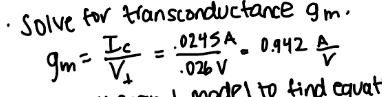 · Solve for transconductance gm.
gm = Ic/Vt = .0245A/.026V = 0.942 A/V
model to find equat